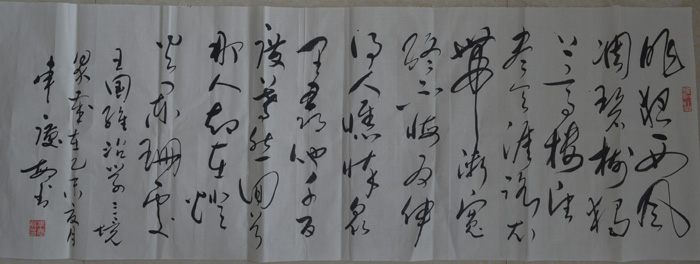 昨夜西风
凋碧树独
上高楼望
尽天涯路衣
带渐宽
终不悔为伊
消得人憔悴众
里寻他千百
度蓦然回首
那人却在灯
火阑珊处
王国维治学三境
界岁在乙亥月